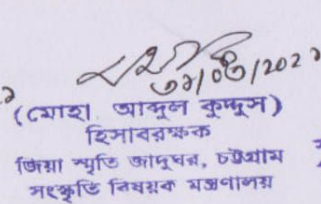 ৩১/০৩/২০২১
(মোহা. আব্দুল কুদ্দুস)
হিসাবরক্ষক
জিয়া স্মৃতি জাদুঘর, চট্টগ্রাম
সংস্কৃতি বিষয়ক মন্ত্রণালয়